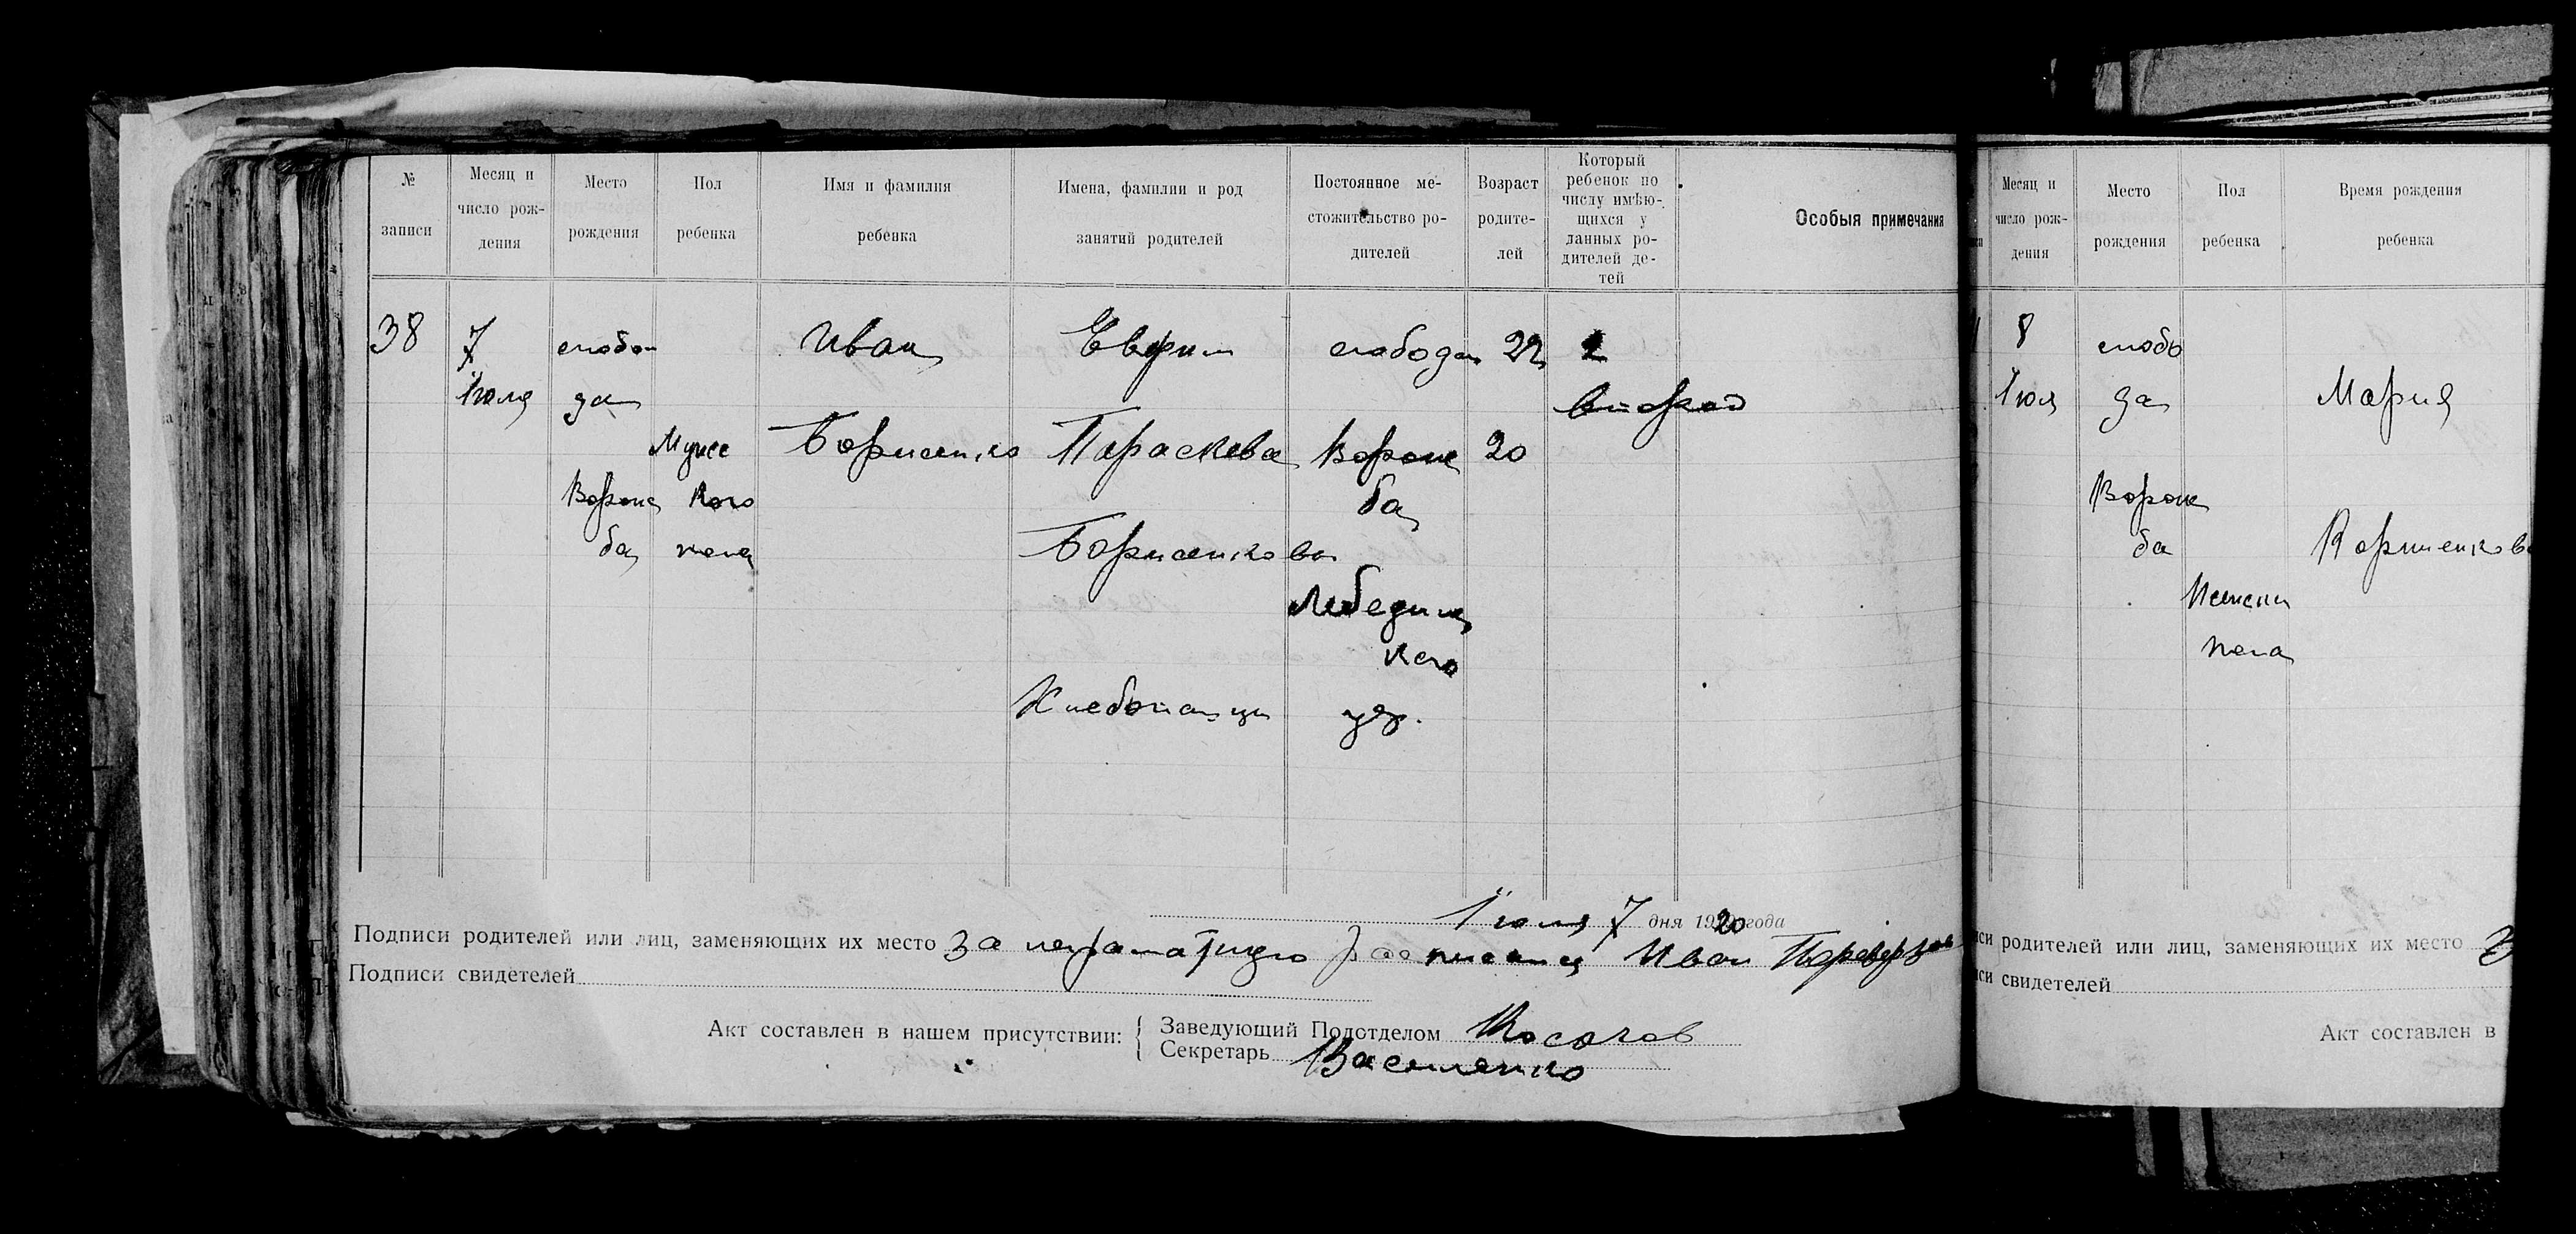 № записи
Месяц и число рождения
Место рождения
Пол ребенка
Имя и фамилия ребенка
Имена, фамилии и род занятий родителей
Постоянное местожительство родителей
Возраст родителей
Который ребенок по числу имѣющихся у данных родителей детей
Особыя примечания
38
7 Iюля
слобода Ворожба
Мужского пола
Иван Борисенко
Евфим
Параскева
Борисенкова
Хлебопащи
слобода Ворожба Лебединского уез.
22
20
2
второй
Iюля 7 дня 1920 года
Подписи родителей или лиц, заменяющих их место за неграматную росписался Иван
Подписи свидетелей
Акт составлен в нашем присутствии:
Заведующий Подотделом
Секретарь
Месяц и число рождения
Место рождения
Пол ребенка
Время рождения ребенка
8 Iюля
слобода Ворожба
Женски пола
Мария
родителей или лиц, заменяющих их место
свидетелей
Акт составлен в